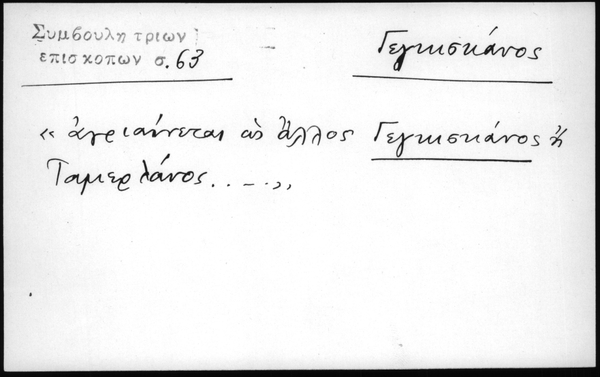 Συμβουλη τριων
επισκοπων σ.63
Γεγκισκάνος
« ἀγριαίνεται ὡς ἄλλος Γεγκισκάνος ἢ
Ταμερλάνος . . . . . »